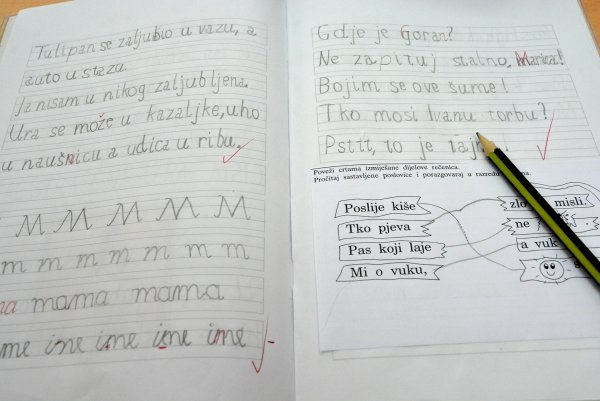 Tulipan se zaljubio u vazu, a
auto u stazu.
Ja nisam u nikog zaljubljena.
Ura se može u kazaljke, uho
u naušnicu a udica u ribu.
M M M M M
m m m m m m
mama mama
me ime ime ime ime
Gdje je Goran?
Ne zapituj stalno, Marina!
Bojim se ove šume!
Tko mosi Ivanu torbu?
Pstt, to je
Poveži crtama izmiješane dijelove rečenica.
Pročitaj sastavljene poslovice i porazgovaraj u razredu
Poslije kiše
zlo misli.
Tko pjeva
ne
Pas koji laje
a vuk
Mi o vuku,